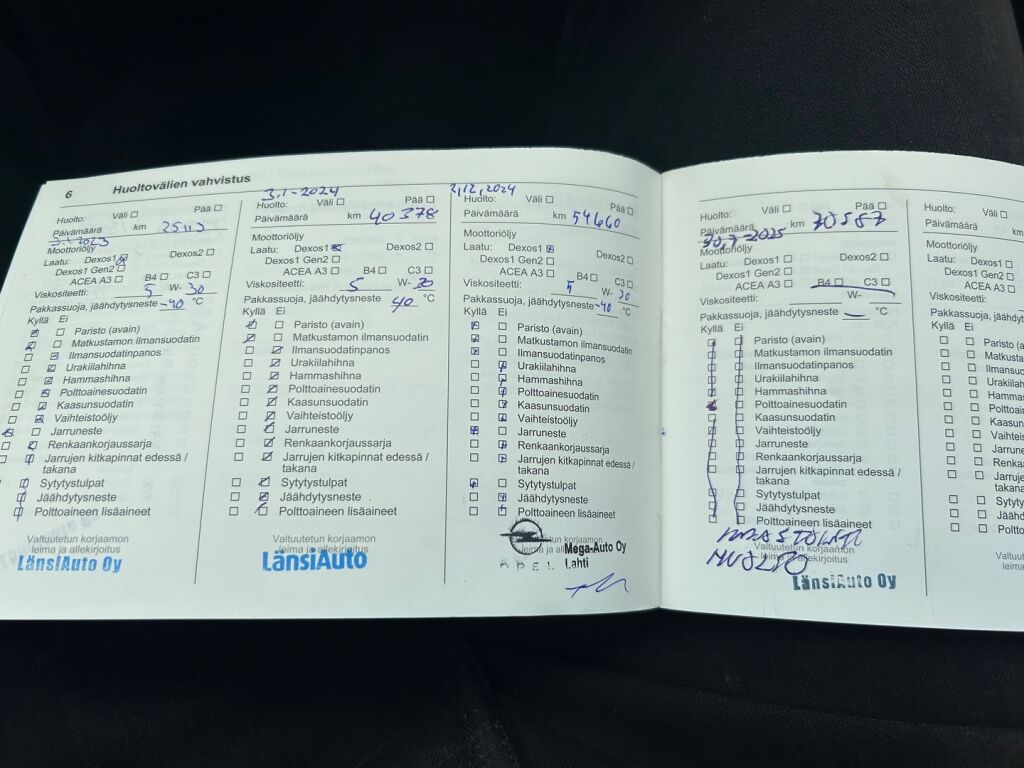 6 Huoltovälien vahvistus
3.1-2024
Huolto: Väli Pää
Päivämäärä km 25113
3.1-2023
Moottoriöljy
Laatu: Dexos1 Dexos2
Dexos1 Gen2
ACEA A3 B4 C3
Viskositeetti: 5 W- 30
Pakkassuoja, jäähdytysneste -40 °C
Kyllä Ei
Paristo (avain)
Matkustamon ilmansuodatin
Ilmansuodatinpanos
Urakiilahihna
Hammashihna
Polttoainesuodatin
Kaasunsuodatin
Vaihteistoöljy
Jarruneste
Renkaankorjaussarja
Jarrujen kitkapinnat edessä /
takana
Sytytystulpat
Jäähdytysneste
Polttoaineen lisäaineet
Valtuutetun korjaamon
leima ja allekirjoitus
LänsiAuto Oy
Huolto: Väli Pää
Päivämäärä km 40378
Moottoriöljy
Laatu: Dexos1 Dexos2
Dexos1 Gen2
ACEA A3 B4 C3
Viskositeetti: 5 W- 30
Pakkassuoja, jäähdytysneste 40 °C
Kyllä Ei
Paristo (avain)
Matkustamon ilmansuodatin
Ilmansuodatinpanos
Urakiilahihna
Hammashihna
Polttoainesuodatin
Kaasunsuodatin
Vaihteistoöljy
Jarruneste
Renkaankorjaussarja
Jarrujen kitkapinnat edessä /
takana
Sytytystulpat
Jäähdytysneste
Polttoaineen lisäaineet
Valtuutetun korjaamon
leima ja allekirjoitus
LänsiAuto
2,12,2024
Huolto: Väli Pää
Päivämäärä km 54660
Moottoriöljy
Laatu: Dexos1 Dexos2
Dexos1 Gen2
ACEA A3 B4 C3
Viskositeetti: 5 W- 30
Pakkassuoja, jäähdytysneste -40 °C
Kyllä Ei
Paristo (avain)
Matkustamon ilmansuodatin
Ilmansuodatinpanos
Urakiilahihna
Hammashihna
Polttoainesuodatin
Kaasunsuodatin
Vaihteistoöljy
Jarruneste
Renkaankorjaussarja
Jarrujen kitkapinnat edessä /
takana
Sytytystulpat
Jäähdytysneste
Polttoaineen lisäaineet
Valtuutetun korjaamon
leima ja allekirjoitus
Mega-Auto Oy
OPEL Lahti
Huolto: Väli Pää
Päivämäärä km 70587
30,7-2025
Moottoriöljy
Laatu: Dexos1 Dexos2
Dexos1 Gen2
ACEA A3 B4 C3
Viskositeetti: W-
Pakkassuoja, jäähdytysneste °C
Kyllä Ei
Paristo (avain)
Matkustamon ilmansuodatin
Ilmansuodatinpanos
Urakiilahihna
Hammashihna
Polttoainesuodatin
Kaasunsuodatin
Vaihteistoöljy
Jarruneste
Renkaankorjaussarja
Jarrujen kitkapinnat edessä /
takana
Sytytystulpat
Jäähdytysneste
Polttoaineen lisäaineet
Valtuutetun korjaamon
leima ja allekirjoitus
HUOLTO
LänsiAuto Oy
Huolto:
Päivämäärä
Moottoriöljy
Laatu: Dexos1
Dexos1 Gen2
ACEA A3
Viskositeetti:
Pakkassuoja, jäähdyt
Kyllä Ei
Paristo (a
Matkusta
Ilmansuo
Urakiila
Hammas
Polttoain
Kaasuns
Vaihteis
Jarrune
Renkaa
Jarruje
takana
Sytyty
Jäähd
Poltto
Valtuut
leima